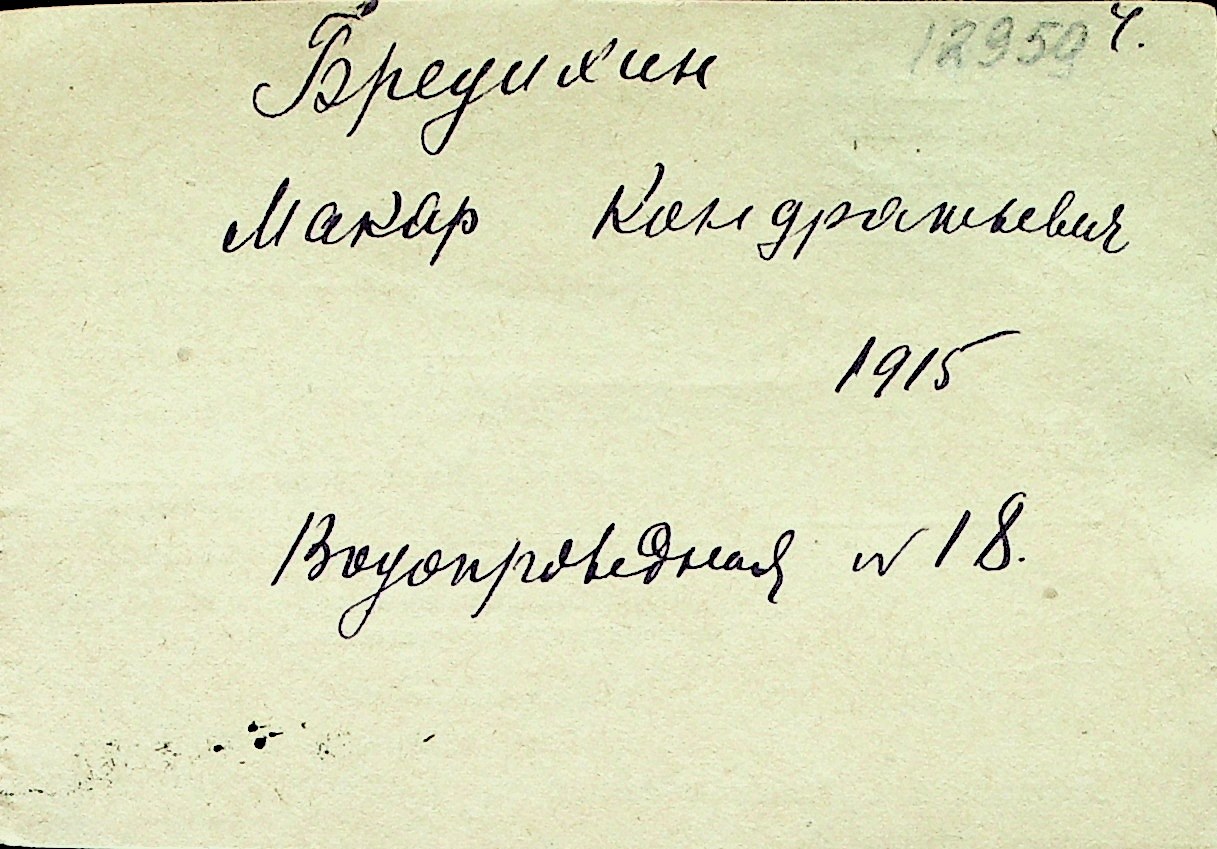 Бредихин 12959 ч.
Макар Кондратьевич
1915
Водопроводная N 18.